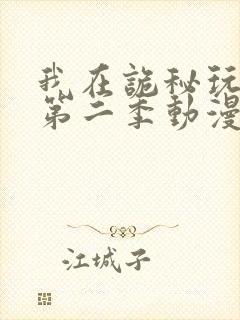 我在詭秘玩
第二季動漫
江城子